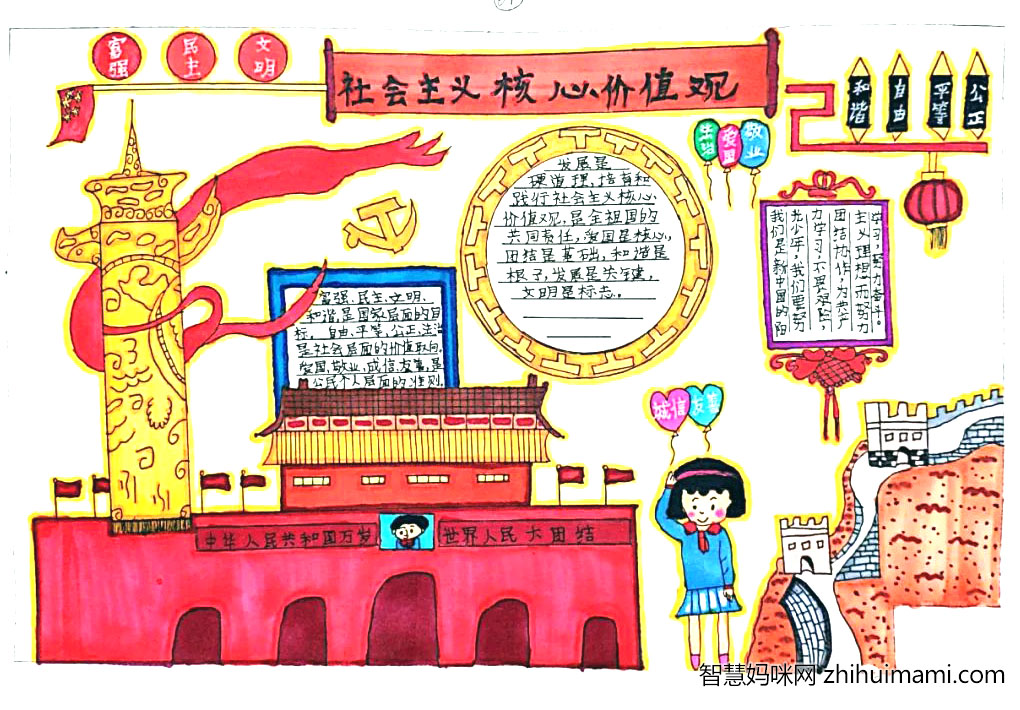 富强
民主
文明
社会主义核心价值观
和谐
自由
平等
公正
法治
爱国
敬业
发展是
硬道理,培育和
践行社会主义核心
价值观,是全祖国的
共同责任,爱国是核心,
团结是基础,和谐是
根子,发展是关键,
文明是标志。
学习,努力奋斗。
主义理想而努力
团结协作,为共产
力学习,不畏艰险,
光少年,我们要努
我们是新中国的阳
富强、民主、文明、
和谐,是国家层面的目
标,自由、平等、公正、法治
是社会层面的价值取向,
爱国、敬业、诚信、友善,是
公民个人层面的准则,
诚信
友善
中华人民共和国万岁
世界人民大团结
智慧妈咪网 zhihuimami.com